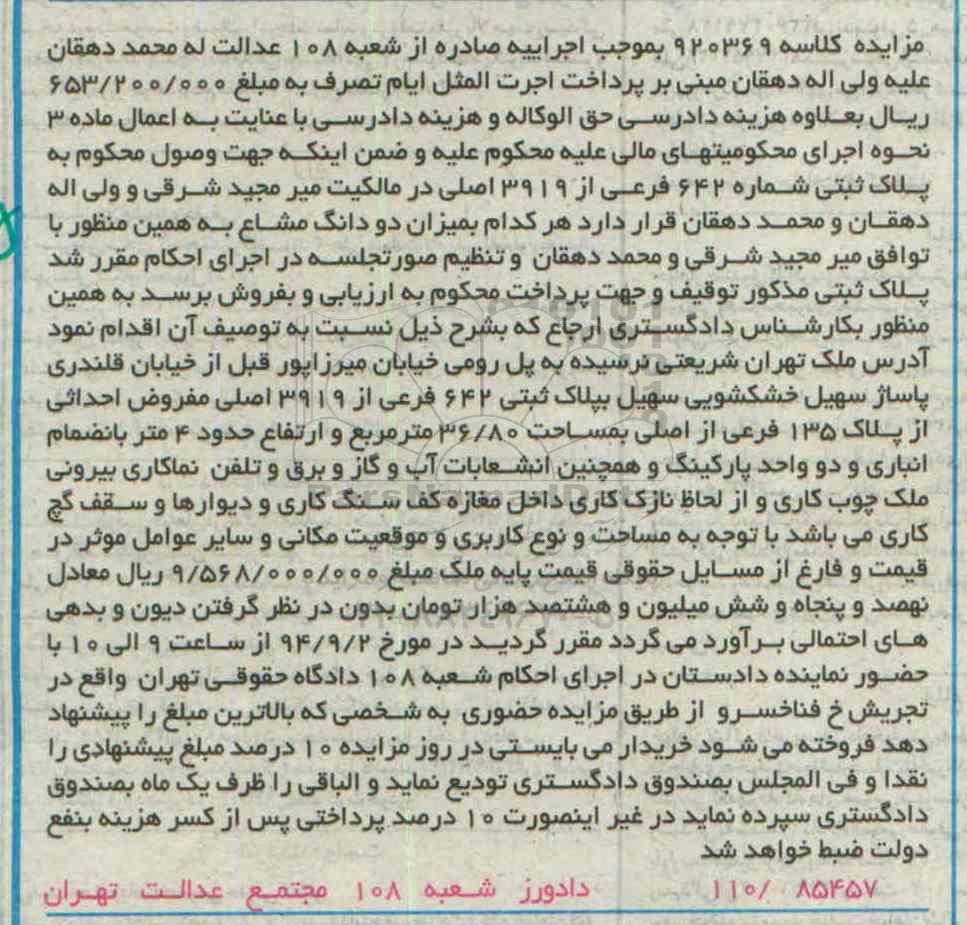 مزایده کلاسه ۹۲۰۳۶۹ بموجب اجراییه صادره از شعبه ۱۰۸ عدالت له محمد دهقان
علیه ولی اله دهقان مبنی بر پرداخت اجرت المثل ایام تصرف به مبلغ ۶۵۳/۲۰۰/۰۰۰
ریال بعلاوه هزینه دادرسی حق الوکاله و هزینه دادرسی با عنایت به اعمال ماده ۳
نحوه اجرای محکومیتهای مالی علیه محکوم علیه و ضمن اینکه جهت وصول محکوم به
پلاک ثبتی شماره ۶۴۲ فرعی از ۳۹۱۹ اصلی در مالکیت میر مجید شرقی و ولی اله
دهقان و محمد دهقان قرار دارد هر کدام بمیزان دو دانگ مشاع به همین منظور با
توافق میر مجید شرقی و محمد دهقان و تنظیم صورتجلسه در اجرای احکام مقرر شد
پلاک ثبتی مذکور توقیف و جهت پرداخت محکوم به ارزیابی و بفروش برسد به همین
منظور بکارشناس دادگستری ارجاع که بشرح ذیل نسبت به توصیف آن اقدام نمود
آدرس ملک تهران شریعتی نرسیده به پل رومی خیابان میرزاپور قبل از خیابان قلندری
پاساژ سهیل خشکشویی سهیل بپلاک ثبتی ۶۴۲ فرعی از ۳۹۱۹ اصلی مفروض احداثی
از پلاک ۱۳۵ فرعی از اصلی بمساحت ۳۶/۸۰ مترمربع و ارتفاع حدود ۴ متر بانضمام
انباری و دو واحد پارکینگ و همچنین انشعابات آب و گاز و برق و تلفن نماکاری بیرونی
ملک چوب کاری و از لحاظ نازک کاری داخل مغازه کف سنگ کاری و دیوارها و سقف گچ
کاری می باشد با توجه به مساحت و نوع کاربری و موقعیت مکانی و سایر عوامل موثر در
قیمت و فارغ از مسایل حقوقی قیمت پایه ملک مبلغ ۹/۵۶۸/۰۰۰/۰۰۰ ریال معادل
نهصد و پنجاه و شش میلیون و هشتصد هزار تومان بدون در نظر گرفتن دیون و بدهی
های احتمالی برآورد می گردد مقرر گردید در مورخ ۹۴/۹/۲ از ساعت ۹ الی ۱۰ با
حضور نماینده دادستان در اجرای احکام شعبه ۱۰۸ دادگاه حقوقی تهران واقع در
تجریش خ فناخسرو از طریق مزایده حضوری به شخصی که بالاترین مبلغ را پیشنهاد
دهد فروخته می شود خریدار می بایستی در روز مزایده ۱۰ درصد مبلغ پیشنهادی را
نقدا و فی المجلس بصندوق دادگستری تودیع نماید و الباقی را ظرف یک ماه بصندوق
دادگستری سپرده نماید در غیر اینصورت ۱۰ درصد پرداختی پس از کسر هزینه بنفع
دولت ضبط خواهد شد
۱۱۰/ ۸۵۴۵۷ دادورز شعبه ۱۰۸ مجتمع عدالت تهران